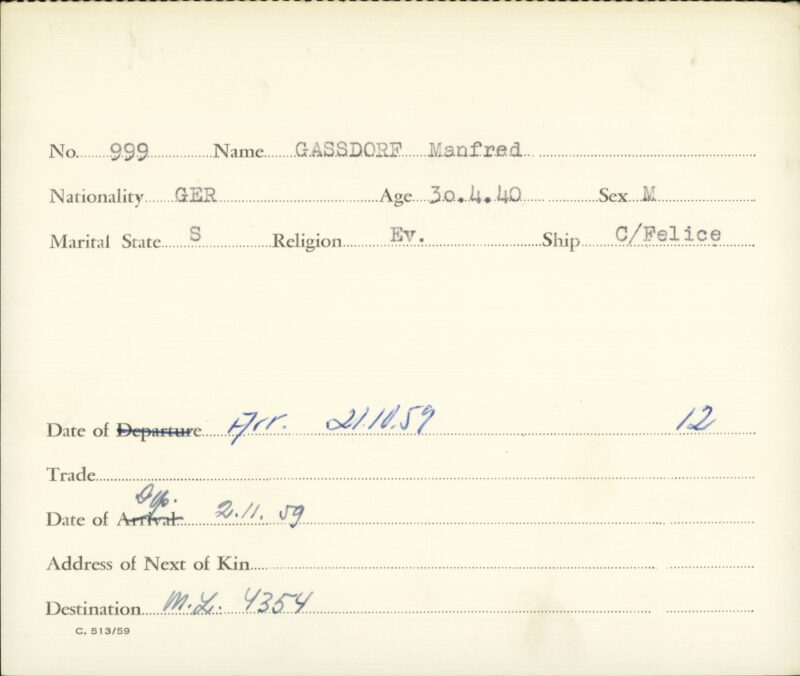 No. 999 Name GASSDORF Manfred
Nationality GER Age 30.4.40 Sex M
Marital State S Religion Ev. Ship C/Felice
Date of Departure Arr. 21.10.59 12
Trade
Dep.
Date of Arrival 2.11.59
Address of Next of Kin
Destination M.L. 4354
C. 513/59